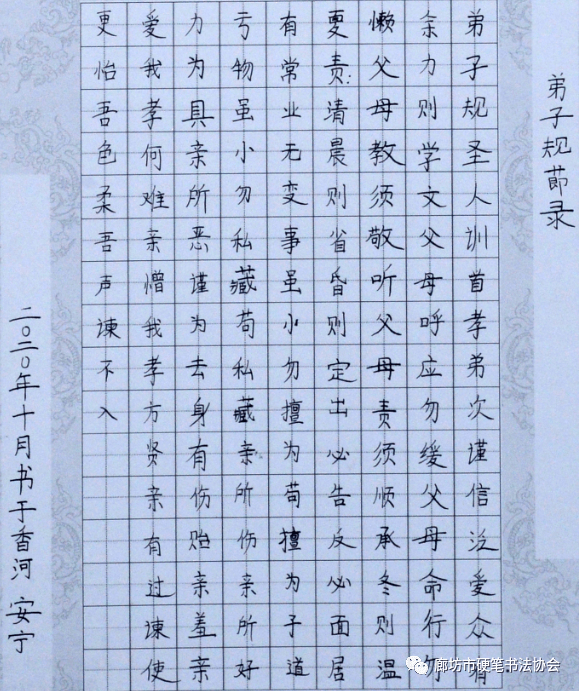 弟子规莭录
弟子规圣人训首孝弟次谨信泛爱众有
余力则学文父母呼应勿缓父母命行勿
懒父母教须敬听父母责须顺承冬则温
夏责:清晨则省昏则定出必告反必面居
有常业无变事虽小勿擅为苟擅为子道
亏物虽小勿私藏苟私藏亲所伤亲所好
力为具亲所恶谨为去身有伤贻亲羞亲
爱我孝何难亲憎我孝方贤亲有过谏使
更怡吾色柔吾声谏不入
二〇二〇年十月书于香河 安宁
廊坊市硬笔书法协会